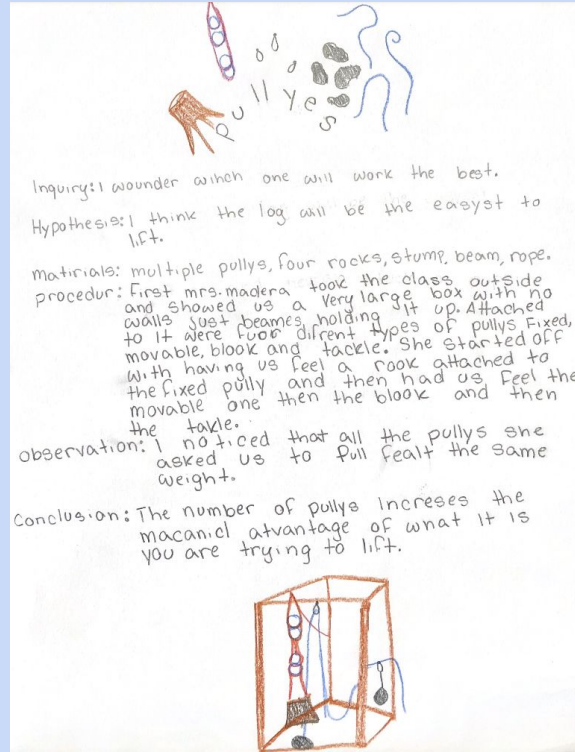 pullyes
Inquiry: I wounder winch one will work the best.
Hypothesis: I think the log will be the easyst to
lift.
matirials: multiple pullys, four rocks, stump, beam, rope.
procedur: First mrs. madera took the class outside
and showed us a very large box with no
walls just beames holding it up. Attached
to it were fuor difrent types of pullys Fixed,
movable, blook and tackle. She started off
with having us feel a rook attached to
the fixed pully and then had us feel the
movable one then the blook and then
the takle.
observation: I noticed that all the pullys she
asked us to pull fealt the same
weight.
Conclusion: The number of pullys increses the
macanicl atvantage of what it is
you are trying to lift.